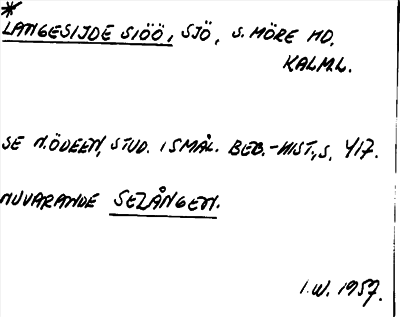 *
LANGESIJDE SIÖÖ, SJÖ, S. MÖRE HD,
KALM.L.
SE N. ÖDEEN, STUD. I SMÅL. BEB.-HIST., S. 417.
NUVARANDE SELÅNGEN.
I.W. 1957.